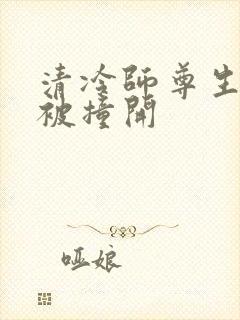 清冷師尊生
被撞開
啞娘